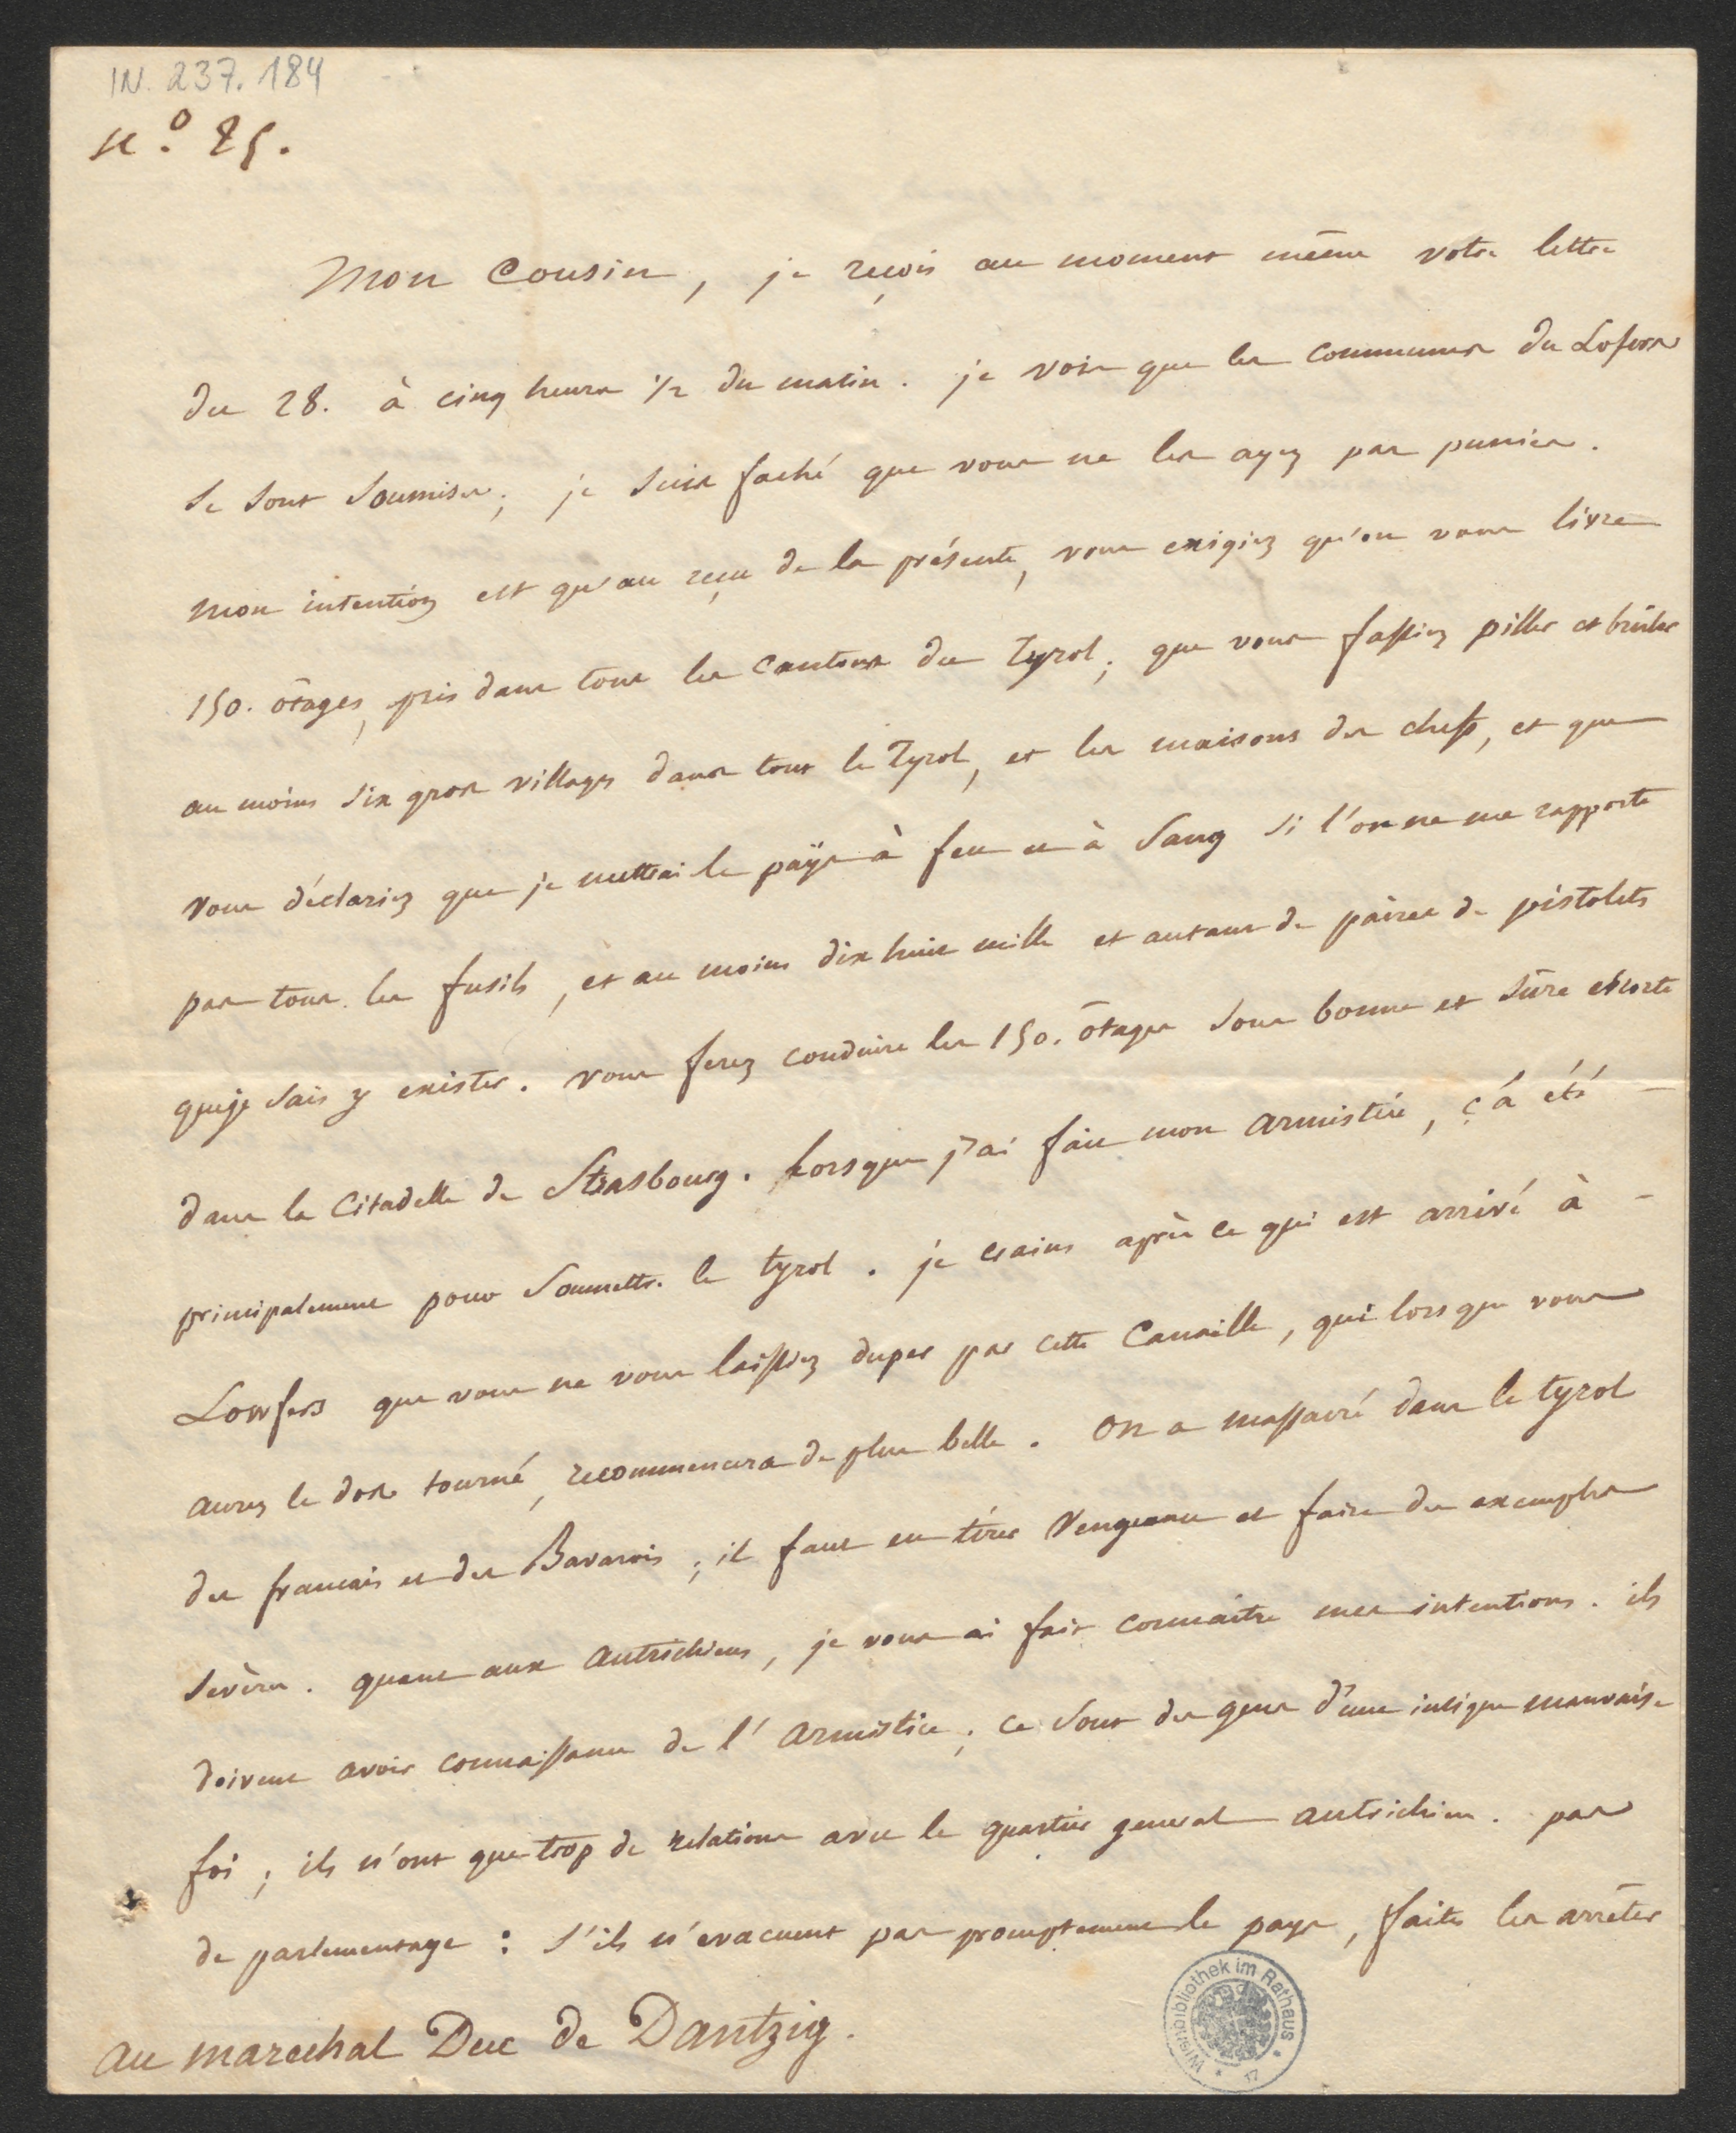 IN. 237.184
N.º 25.
Mon Cousin, je reçois au moment même votre lettre
du 28. à cinq heures 1/2 du matin. je vois que les communes du Lofers
se sont soumises; je suis faché que vous ne les ayez pas punies.
Mon intention est qu'au reçu de la présente, vous exigiez qu'on vous livre
150. ôtages, pris dans tous les cantons du Tyrol; que vous fassiez piller et brûler
au moins six gros villages dans tout le Tyrol, et les maisons des chefs, et que
vous déclariez que je mettrai le païs à feu et à sang si l'on ne me rapporte
pas tous les fusils, et au moins dix huit mille et autant de paires de pistolets
que je sais y exister. vous ferez conduire les 150. ôtages sous bonne et sûre escorte
dans la Citadelle de Strasbourg. Lorsque j'ai fait mon armistice, ç'á été
principalement pour soumettre le tyrol. je crains après ce qui est arrivé à
Lowfers que vous ne vous laissiez duper par cette Canaille, qui lorsque vous
aurez le dos tourné, recommencera de plus belle. On a massacré dans le tyrol
des francais et des Bavarois; il faut en tirer vengeance et faire des exemples
sévères. quant aux autrichiens, je vous ai fait connaitre mes intentions. ils
doivent avoir connaissance de l'armistice; ce sont des gens d'une insigne mauvaise
foi; ils n'ont que trop de relations avec le quartier general autrichien. pas
de parlementage: s'ils n'evacuent pas promptement le pays, faites les arrêter
au marechal Duc de Dantzig.
Wienbibliothek im Rathaus
17